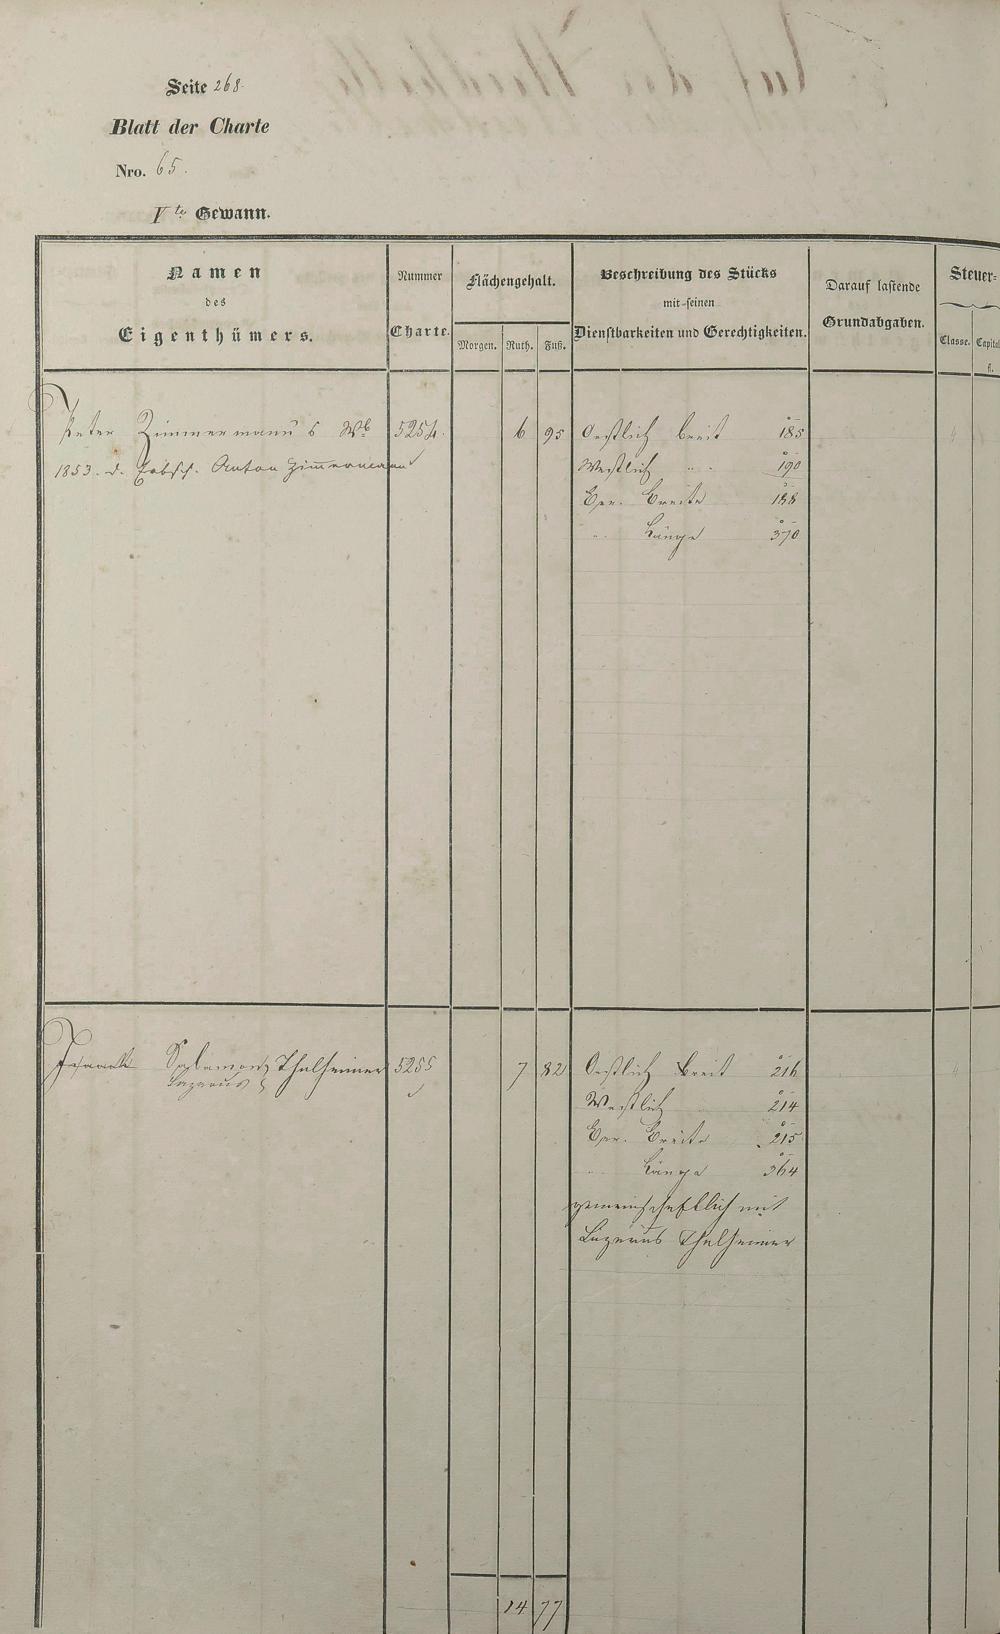 Seite 268.
Blatt der Charte
Nro. 65.
Vte Gewann.
Namen
des
Eigenthümers.
Nummer
Charte.
Flächengehalt.
Morgen. Ruth. Fuß.
Beschreibung des Stücks
mit seinen
Dienstbarkeiten und Gerechtigkeiten.
Darauf lastende
Grundabgaben.
Steuer-
Classe. Capital
fl.
Peter Zimmermann's Wb 5254. 6 95 Oestlich breit 185
1853. d. Erbsch. Anton Zimmermann Westlich " 190
Ger. Breite 188
" Länge 370
Isaack Salamon Thalheimer 5255 7 82 Oestlich breit 216
Lazarus
Westlich 214
Ger. Breite 215
" Länge 364
gemeinschaftlich mit
Lazarus Thalheimer
14 77